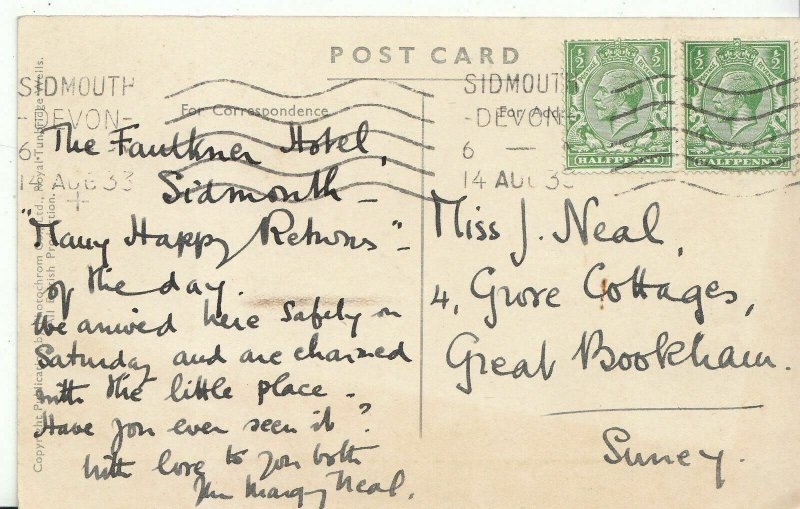 POST CARD
SIDMOUTH
-DEVON-
6 —
14 AUG 33
SIDMOUTH
-DEVON-
6 —
14 AUG 33
For Correspondence
For Add
HALFPENNY
HALFPENNY
The Faulkner Hotel,
Sidmouth -
"Many Happy Returns" -
of the day.
We arrived here safely on
Saturday and are charmed
with the little place -
Have you ever seen it?
With love to you both
Margy Neal.
Miss J. Neal,
4, Grove Cottages,
Great Bookham.
Surrey.
Copyright Publication by Photochrom Co. Ltd., Royal Tunbridge Wells.
All British Production.